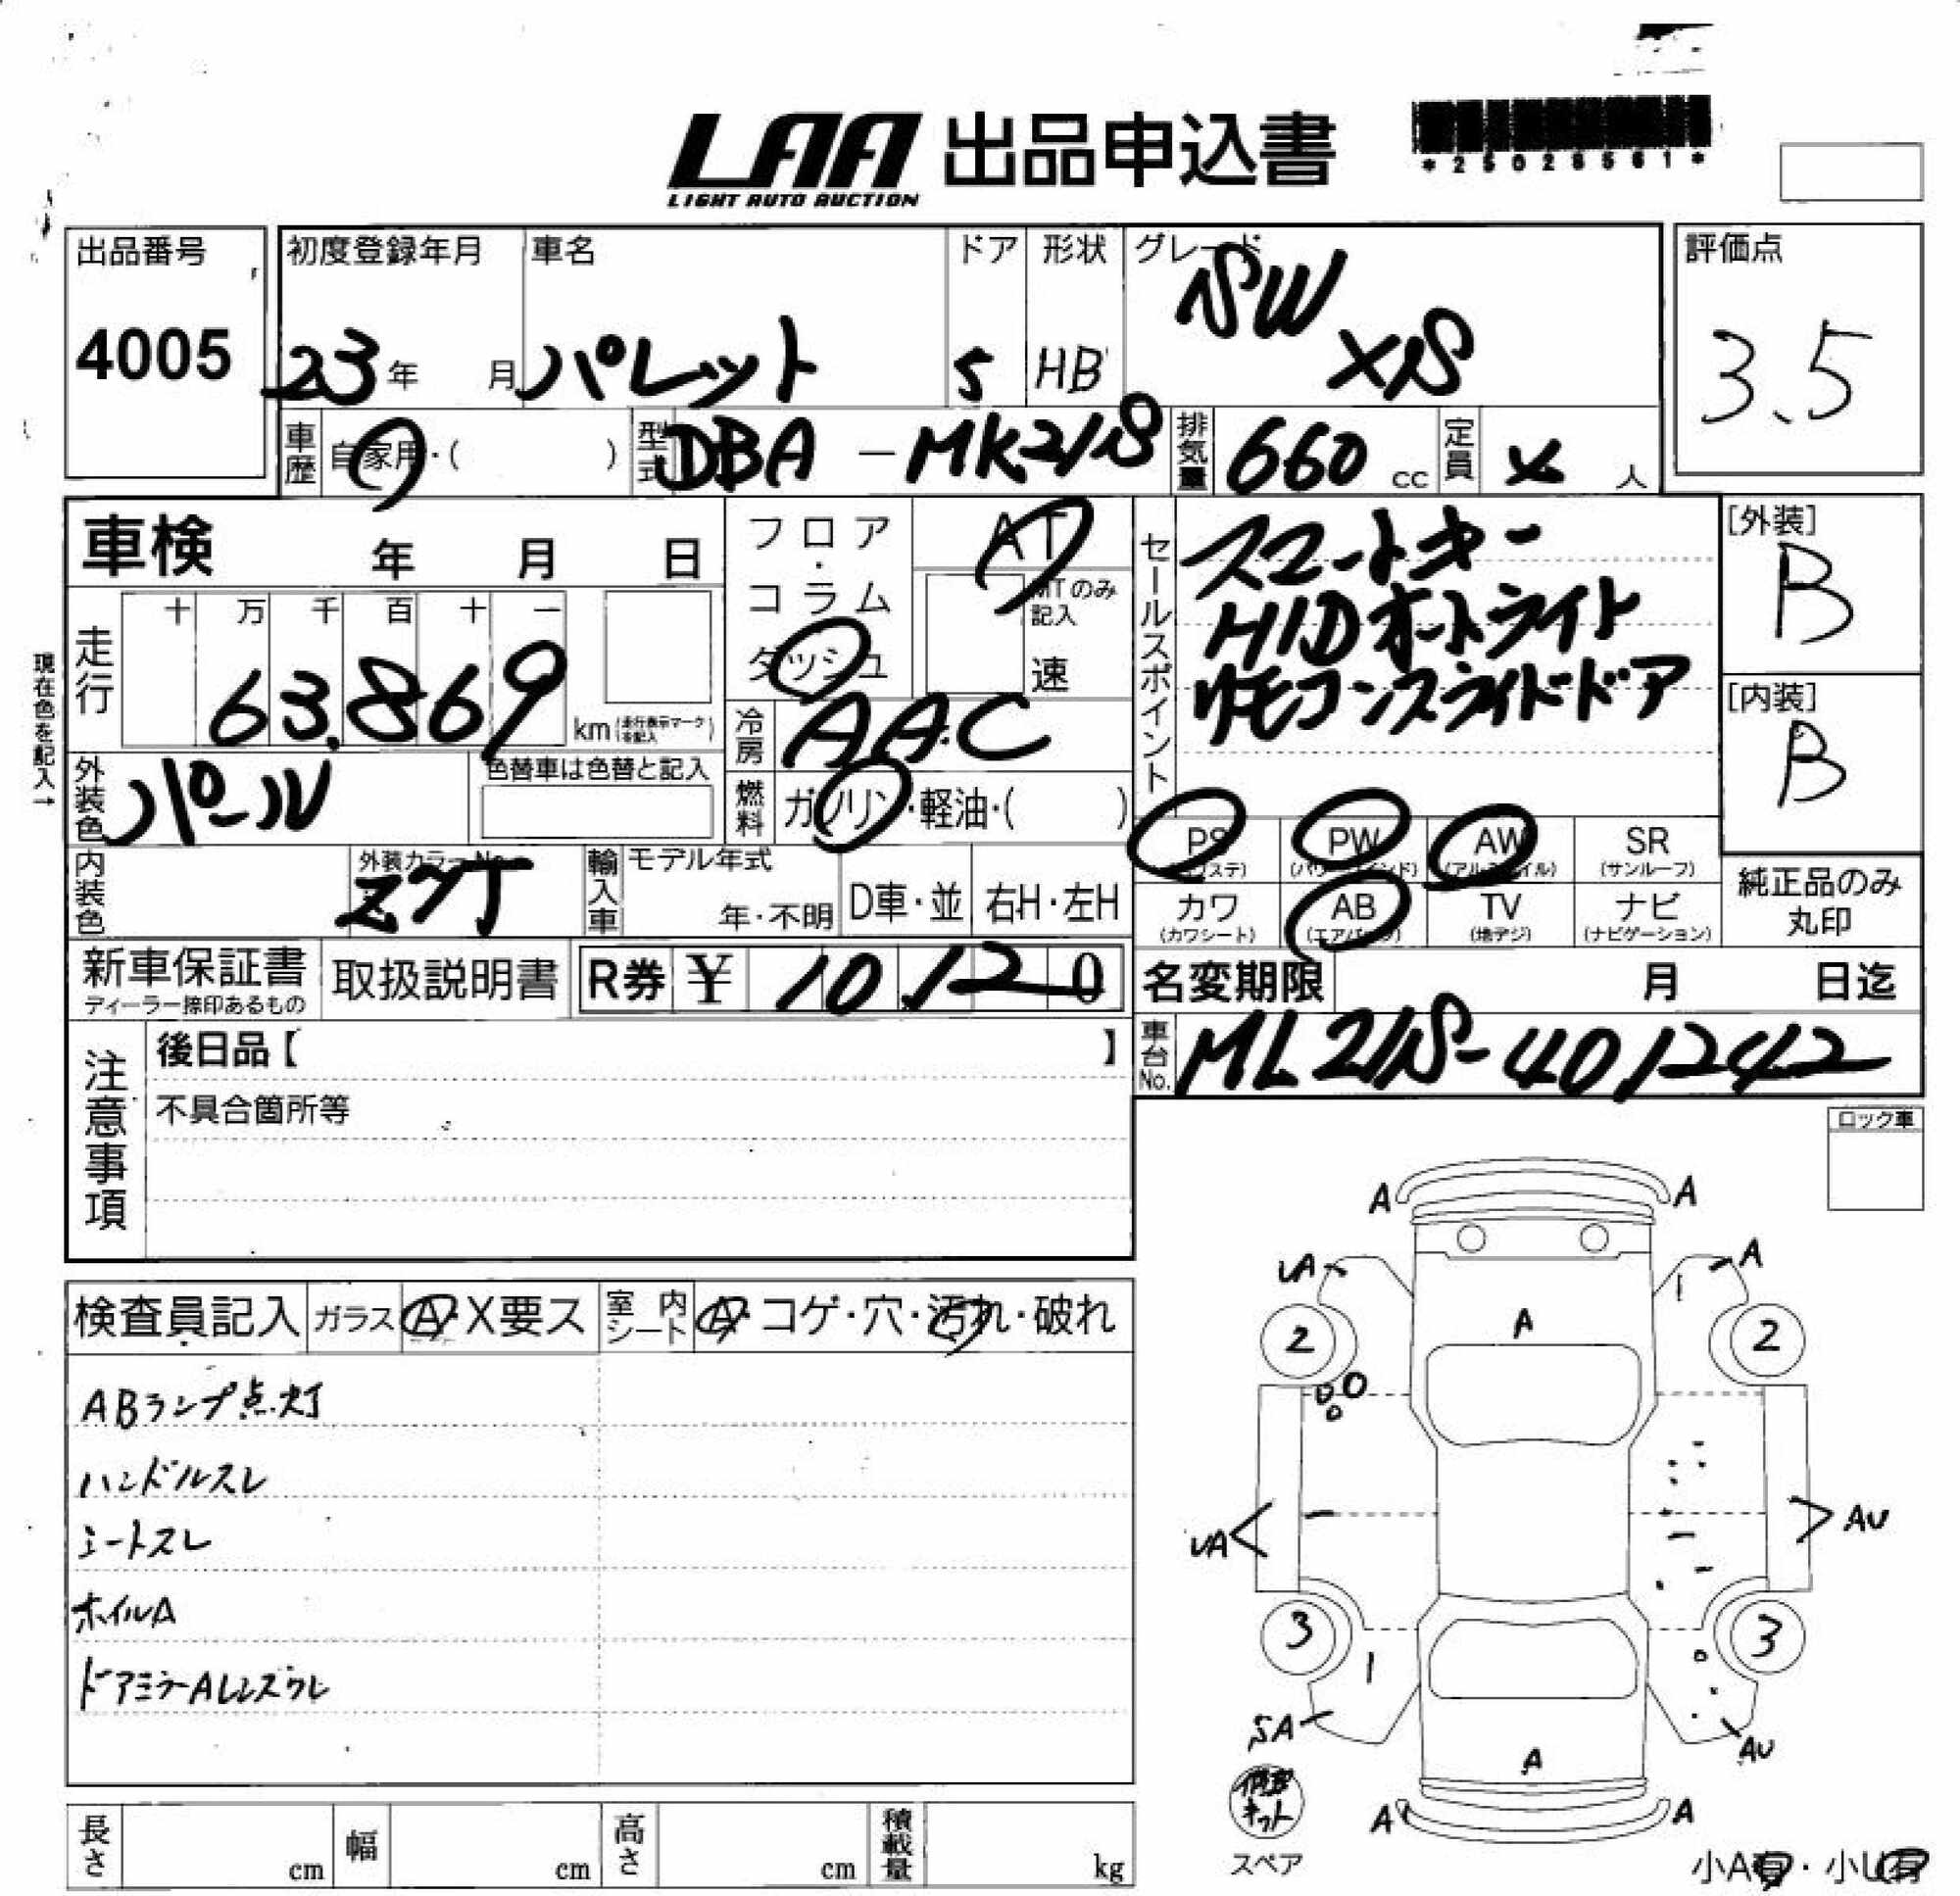 LAA 出品申込書
LIGHT AUTO AUCTION
*25028561*
出品番号
4005
初度登録年月
23年 月
車名
パレット
ドア
5
形状
HB
グレード
SW
XS
評価点
3.5
車歴
自家用・( )
型式
DBA-MK21S
排気量
660 cc
定員
4 人
車検 年 月 日
フロア・コラム
ダッシュ
AT
MTのみ記入
速
セールスポイント
スマートキー
HIDオートライト
リモコンスライドドア
[外装]
B
[内装]
B
現在色を記入→
走行
十 万 千 百 十 一
63,869
km (走行表示マーク を記入)
冷房
AAC
外装色
パール
色替車は色替と記入
燃料
ガソリン・軽油・( )
PS
(パワステ)
PW
(パワーウインド)
AW
(アルミホイル)
SR
(サンルーフ)
カワ
(カワシート)
AB
(エアバッグ)
TV
(地デジ)
ナビ
(ナビゲーション)
純正品のみ
丸印
内装色
外装カラーNo.
Z7T
輸入車
モデル年式
年・不明
D車・並
右H・左H
新車保証書
ディーラー捺印あるもの
取扱説明書
R券 ¥ 10,120
名変期限 月 日迄
車台No.
ML21S-401242
注意事項
後日品【 】
不具合箇所等
ロック車
検査員記入
ガラス A・X要ス
室内シート A・コゲ・穴・汚れ・破れ
ABランプ点灯
ハンドルスレ
シートスレ
ホイルA
ドアミラーALレンズワレ
A A
UA A
A
2 2
UA AU
3 3
SA AU
A
A A
スペア
長さ cm
幅 cm
高さ cm
積載量 kg
小A有・小U有